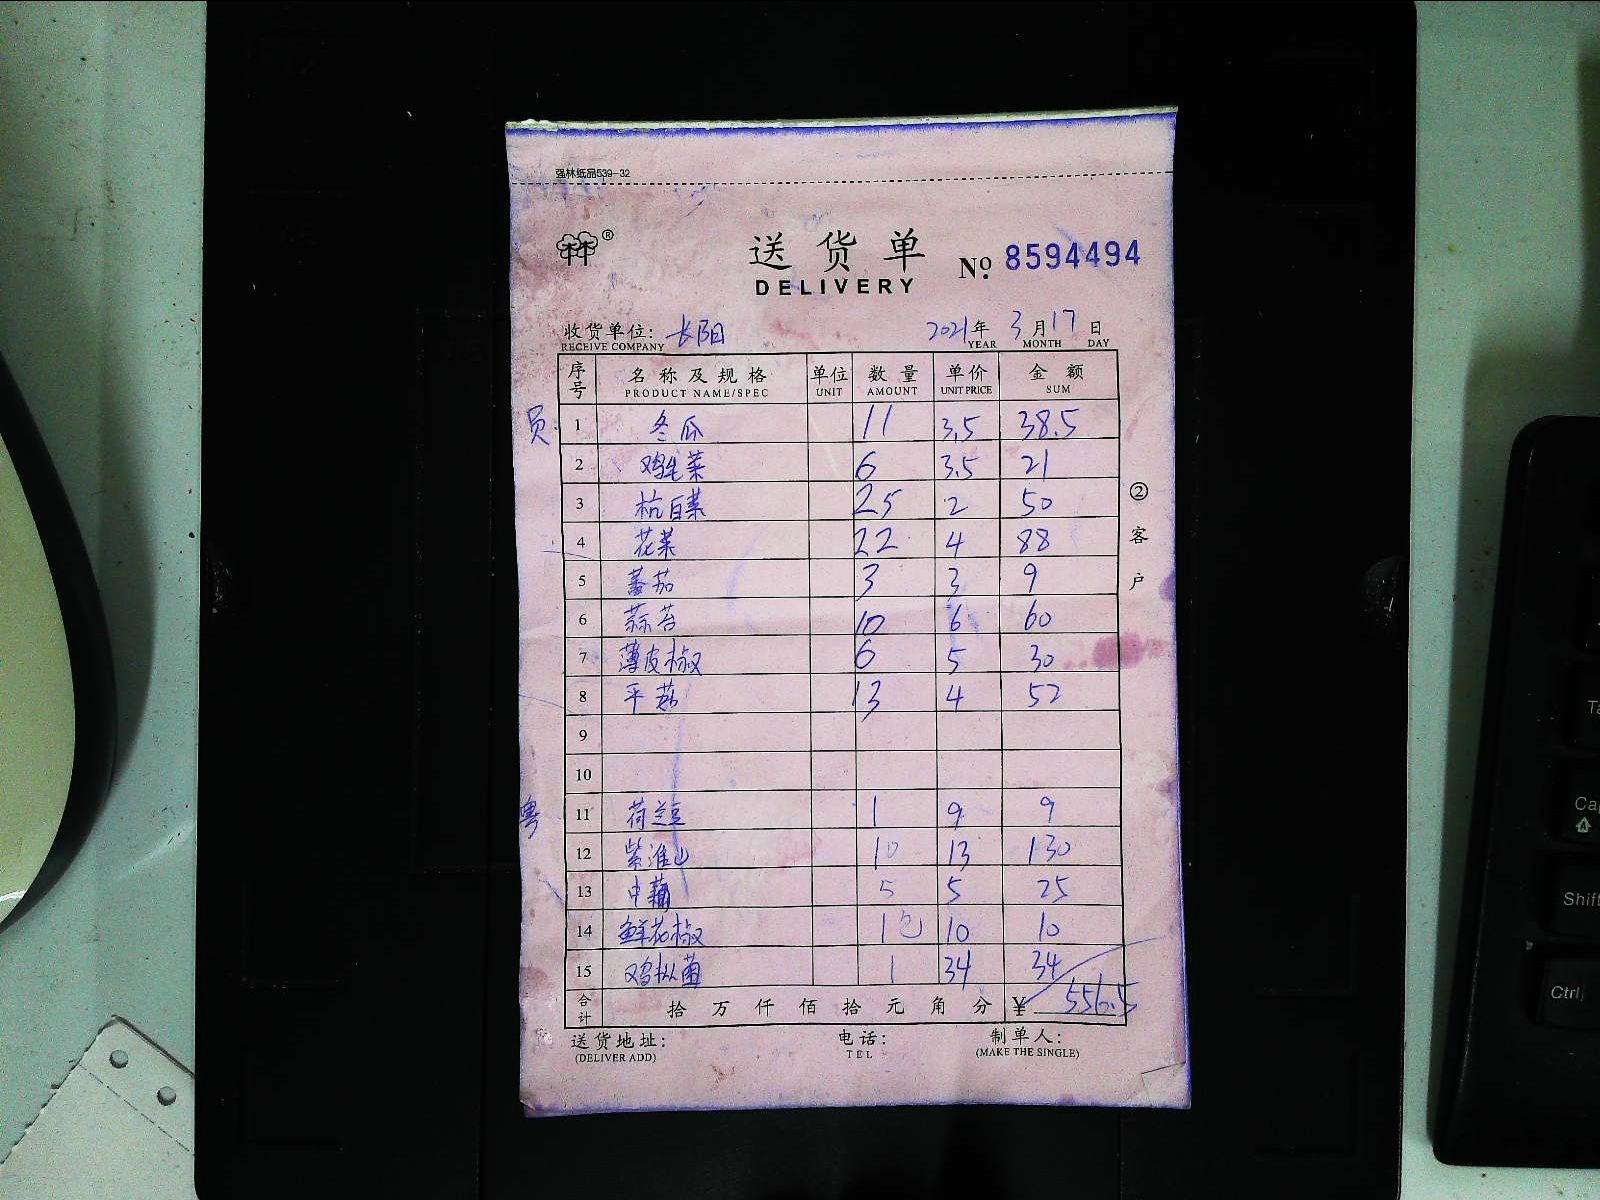 强林纸品539-32
林®
送货单 No. 8594494
DELIVERY
收货单位: 长阳 2021年3月17日
RECEIVE COMPANY YEAR MONTH DAY
序号 名称及规格 单位 数量 单价 金额
PRODUCT NAME/SPEC UNIT AMOUNT UNIT PRICE SUM
员 1 冬瓜 11 3.5 38.5
2 鸡毛菜 6 3.5 21
3 杭白菜 25 2 50
4 花菜 22 4 88
5 蕃茄 3 3 9
6 蒜苔 10 6 60
7 薄皮椒 6 5 30
8 平菇 13 4 52
9
10
粤 11 荷兰豆 1 9 9
12 紫淮山 10 13 130
13 中藕 5 5 25
14 鲜花椒 1包 10 10
15 鸡枞菌 1 34 34
合计 拾 万 仟 佰 拾 元 角 分 ¥ 556.5
送货地址: 电话: 制单人:
(DELIVER ADD) TEL (MAKE THE SINGLE)
②客户
Ta
Cap
Shift
Ctrl